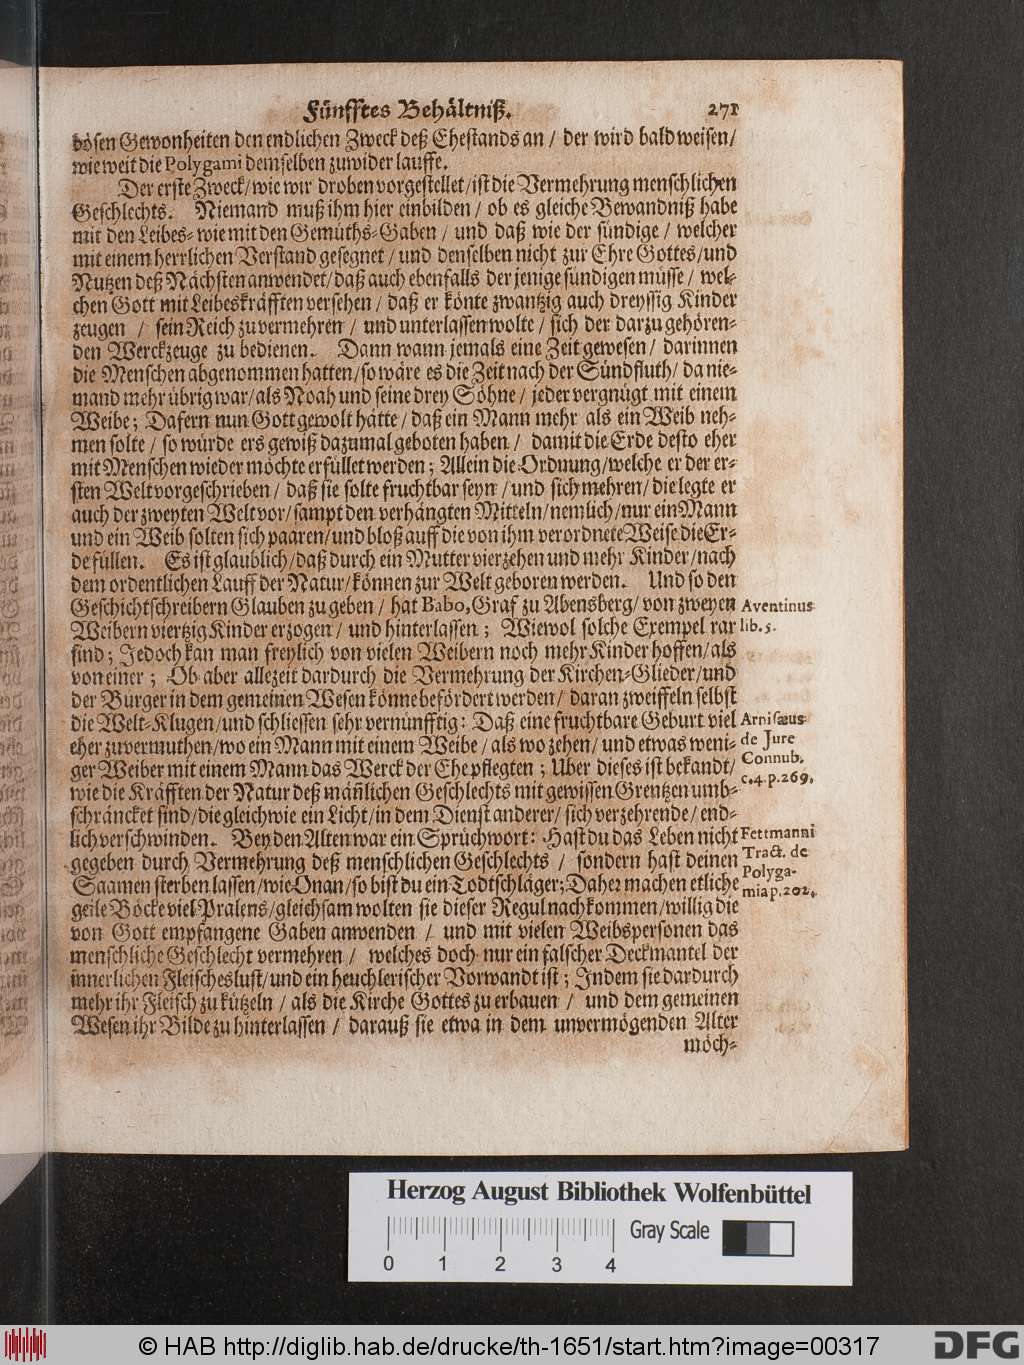 Fünfftes Behältniß.
271
bösen Gewonheiten den endlichen Zweck deß Ehestands an / der wird bald weisen /
wie weit die Polygami demselben zuwider lauffe.
Der erste Zweck / wie wir droben vorgestellet / ist die Vermehrung menschlichen
Geschlechts. Niemand muß ihm hier einbilden / ob es gleiche Bewandniß habe
mit den Leibes- wie mit den Gemüths-Gaben / und daß wie der sündige / welcher
mit einem herrlichen Verstand gesegnet / und denselben nicht zur Ehre Gottes / und
Nutzen deß Nächsten anwendet / daß auch ebenfalls der jenige sündigen müsse / wel-
chen Gott mit Leibeskräfften versehen / daß er könte zwantzig auch dreyssig Kinder
zeugen / sein Reich zu vermehren / und unterlassen wolte / sich der darzu gehören-
den Werckzeuge zu bedienen. Dann wann jemals eine Zeit gewesen / darinnen
die Menschen abgenommen hatten / so wäre es die Zeit nach der Sündfluth / da nie-
mand mehr übrig war / als Noah und seine drey Söhne / jeder vergnügt mit einem
Weibe; Dafern nun Gott gewolt hätte / daß ein Mann mehr als ein Weib neh-
men solte / so würde ers gewiß dazumal geboten haben / damit die Erde desto eher
mit Menschen wieder möchte erfüllet werden; Allein die Ordnung / welche er der er-
sten Welt vorgeschrieben / daß sie solte fruchtbar seyn / und sich mehren / die legte er
auch der zweyten Welt vor / sampt den verhängten Mitteln / nemlich / nur ein Mann
und ein Weib solten sich paaren / und bloß auff die von ihm verordnete Weise die Er-
de füllen. Es ist glaublich / daß durch ein Mutter vierzehen und mehr Kinder / nach
dem ordentlichen Lauff der Natur / können zur Welt geboren werden. Und so den
Geschichtschreibern Glauben zu geben / hat Babo, Graf zu Abensberg / von zweyen
Weibern viertzig Kinder erzogen / und hinterlassen; Wiewol solche Exempel rar
sind; Jedoch kan man freylich von vielen Weibern noch mehr Kinder hoffen / als
von einer; Ob aber allezeit dardurch die Vermehrung der Kirchen-Glieder / und
der Burger in dem gemeinen Wesen könne befördert werden / daran zweiffeln selbst
die Welt-Klugen / und schliessen sehr vernünfftig: Daß eine fruchtbare Geburt viel
eher zuvermuthen / wo ein Mann mit einem Weibe / als wo zehen / und etwas weni-
ger Weiber mit einem Mann das Werck der Ehe pflegten; Uber dieses ist bekandt /
wie die Kräfften der Natur deß mañlichen Geschlechts mit gewissen Grentzen umb-
schräncket sind / die gleich wie ein Licht / in dem Dienst anderer / sich verzehrende / end-
lich verschwinden. Bey den Alten war ein Sprüchwort: Hast du das Leben nicht
gegeben durch Vermehrung deß menschlichen Geschlechts / sondern hast deinen
Saamen sterben lassen / wie Onan / so bist du ein Todtschläger; Daher machen etliche
geile Böcke viel Pralens / gleichsam wolten sie dieser Regul nachkommen / willig die
von Gott empfangene Gaben anwenden / und mit vielen Weibspersonen das
menschliche Geschlecht vermehren / welches doch nur ein falscher Deckmantel der
innerlichen Fleischeslust / und ein heuchlerischer Vorwandt ist; Indem sie dardurch
mehr ihr Fleisch zu kützeln / als die Kirche Gottes zu erbauen / und dem gemeinen
Wesen ihr Bilde zu hinterlassen / darauß sie etwa in dem unvermögenden Alter
möch-
Aventinus
lib. 5.
Arnisæus
de Jure
Connub.
c. 4. p. 269.
Fettmanni
Tract. de
Polyga-
mia p. 202.
Herzog August Bibliothek Wolfenbüttel
0 1 2 3 4
Gray Scale
© HAB http://diglib.hab.de/drucke/th-1651/start.htm?image=00317
DFG